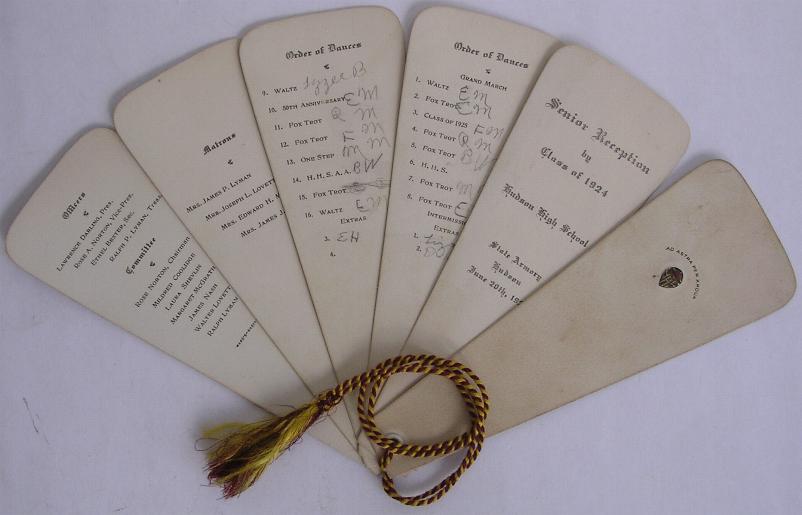 Officers
LAWRENCE DARLING, PRES.
ROSE A. NORTON, VICE-PRES.
ETHEL BEXTER, SEC.
RALPH P. LYMAN, TREAS.
Committee
ROSE NORTON, CHAIRMAN
MILDRED COOLIDGE
LAURA SHEVLIN
MARGARET MCGRATH
JAMES NASH
WALTER LOVETT
RALPH LYMAN
Matrons
MRS. JAMES P. LYMAN
MRS. JOSEPH L. LOVETT
MRS. EDWARD H.
MRS. JAMES J.
Order of Dances
9. WALTZ Lyzee B
10. 50TH ANNIVERSARY E M
11. FOX TROT Q M
12. FOX TROT F M
13. ONE STEP M M
14. H. H. S. A. A. B W
15. FOX TROT
16. WALTZ E M
EXTRAS
3. E H
4.
Order of Dances
GRAND MARCH
1. WALTZ E M
2. FOX TROT E M
3. CLASS OF 1925 F M
4. FOX TROT Q M
5. FOX TROT B W
6. H. H. S.
7. FOX TROT M
8. FOX TROT E
INTERMISSION
EXTRAS
1.
2.
Senior Reception
by
Class of 1924
Hudson High School
State Armory
Hudson
June 20th, 192
AD ASTRA PER ARDUA